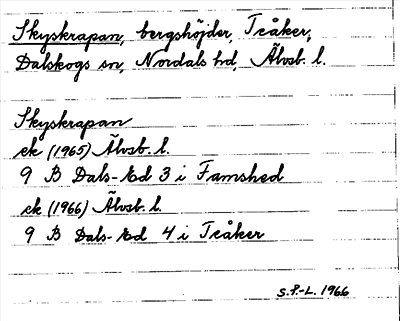 Skyskrapan, bergshöjder, Tråker,
Dalskogs sn, Nordals hd, Älvsb. l.
Skyskrapan
ek (1965) Älvsb. l.
9 B Dals-Ed 3 i Famshed
ek (1966) Älvsb. l.
9 B Dals-Ed 4 i Tråker
S.P.-L. 1966